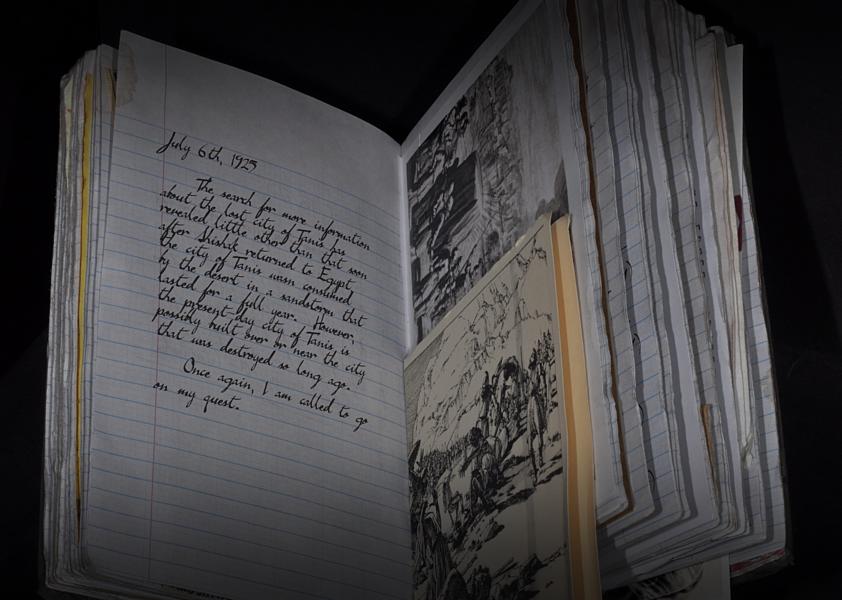 July 6th, 1925
The search for more information
about the lost city of Tanis has
revealed little other than that soon
after Shishak returned to Egypt
the city of Tanis wasn consumed
by the desert in a sandstorm that
lasted for a full year. However,
the present-day city of Tanis is
possibly built over or near the city
that was destroyed so long ago.
Once again, I am called to go
on my quest.